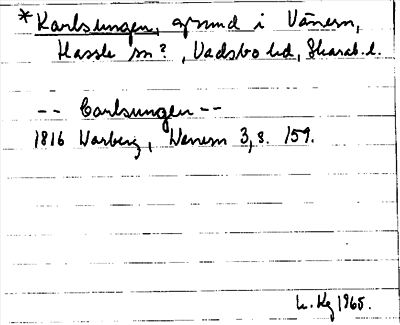 *Karlsungen, grund i Vänern,
Hassle sn?, Vadsbo hd, Skarab. l.
-- Carlsungen --
1816 Warberg, Wenern 3, s. 159.
1965.